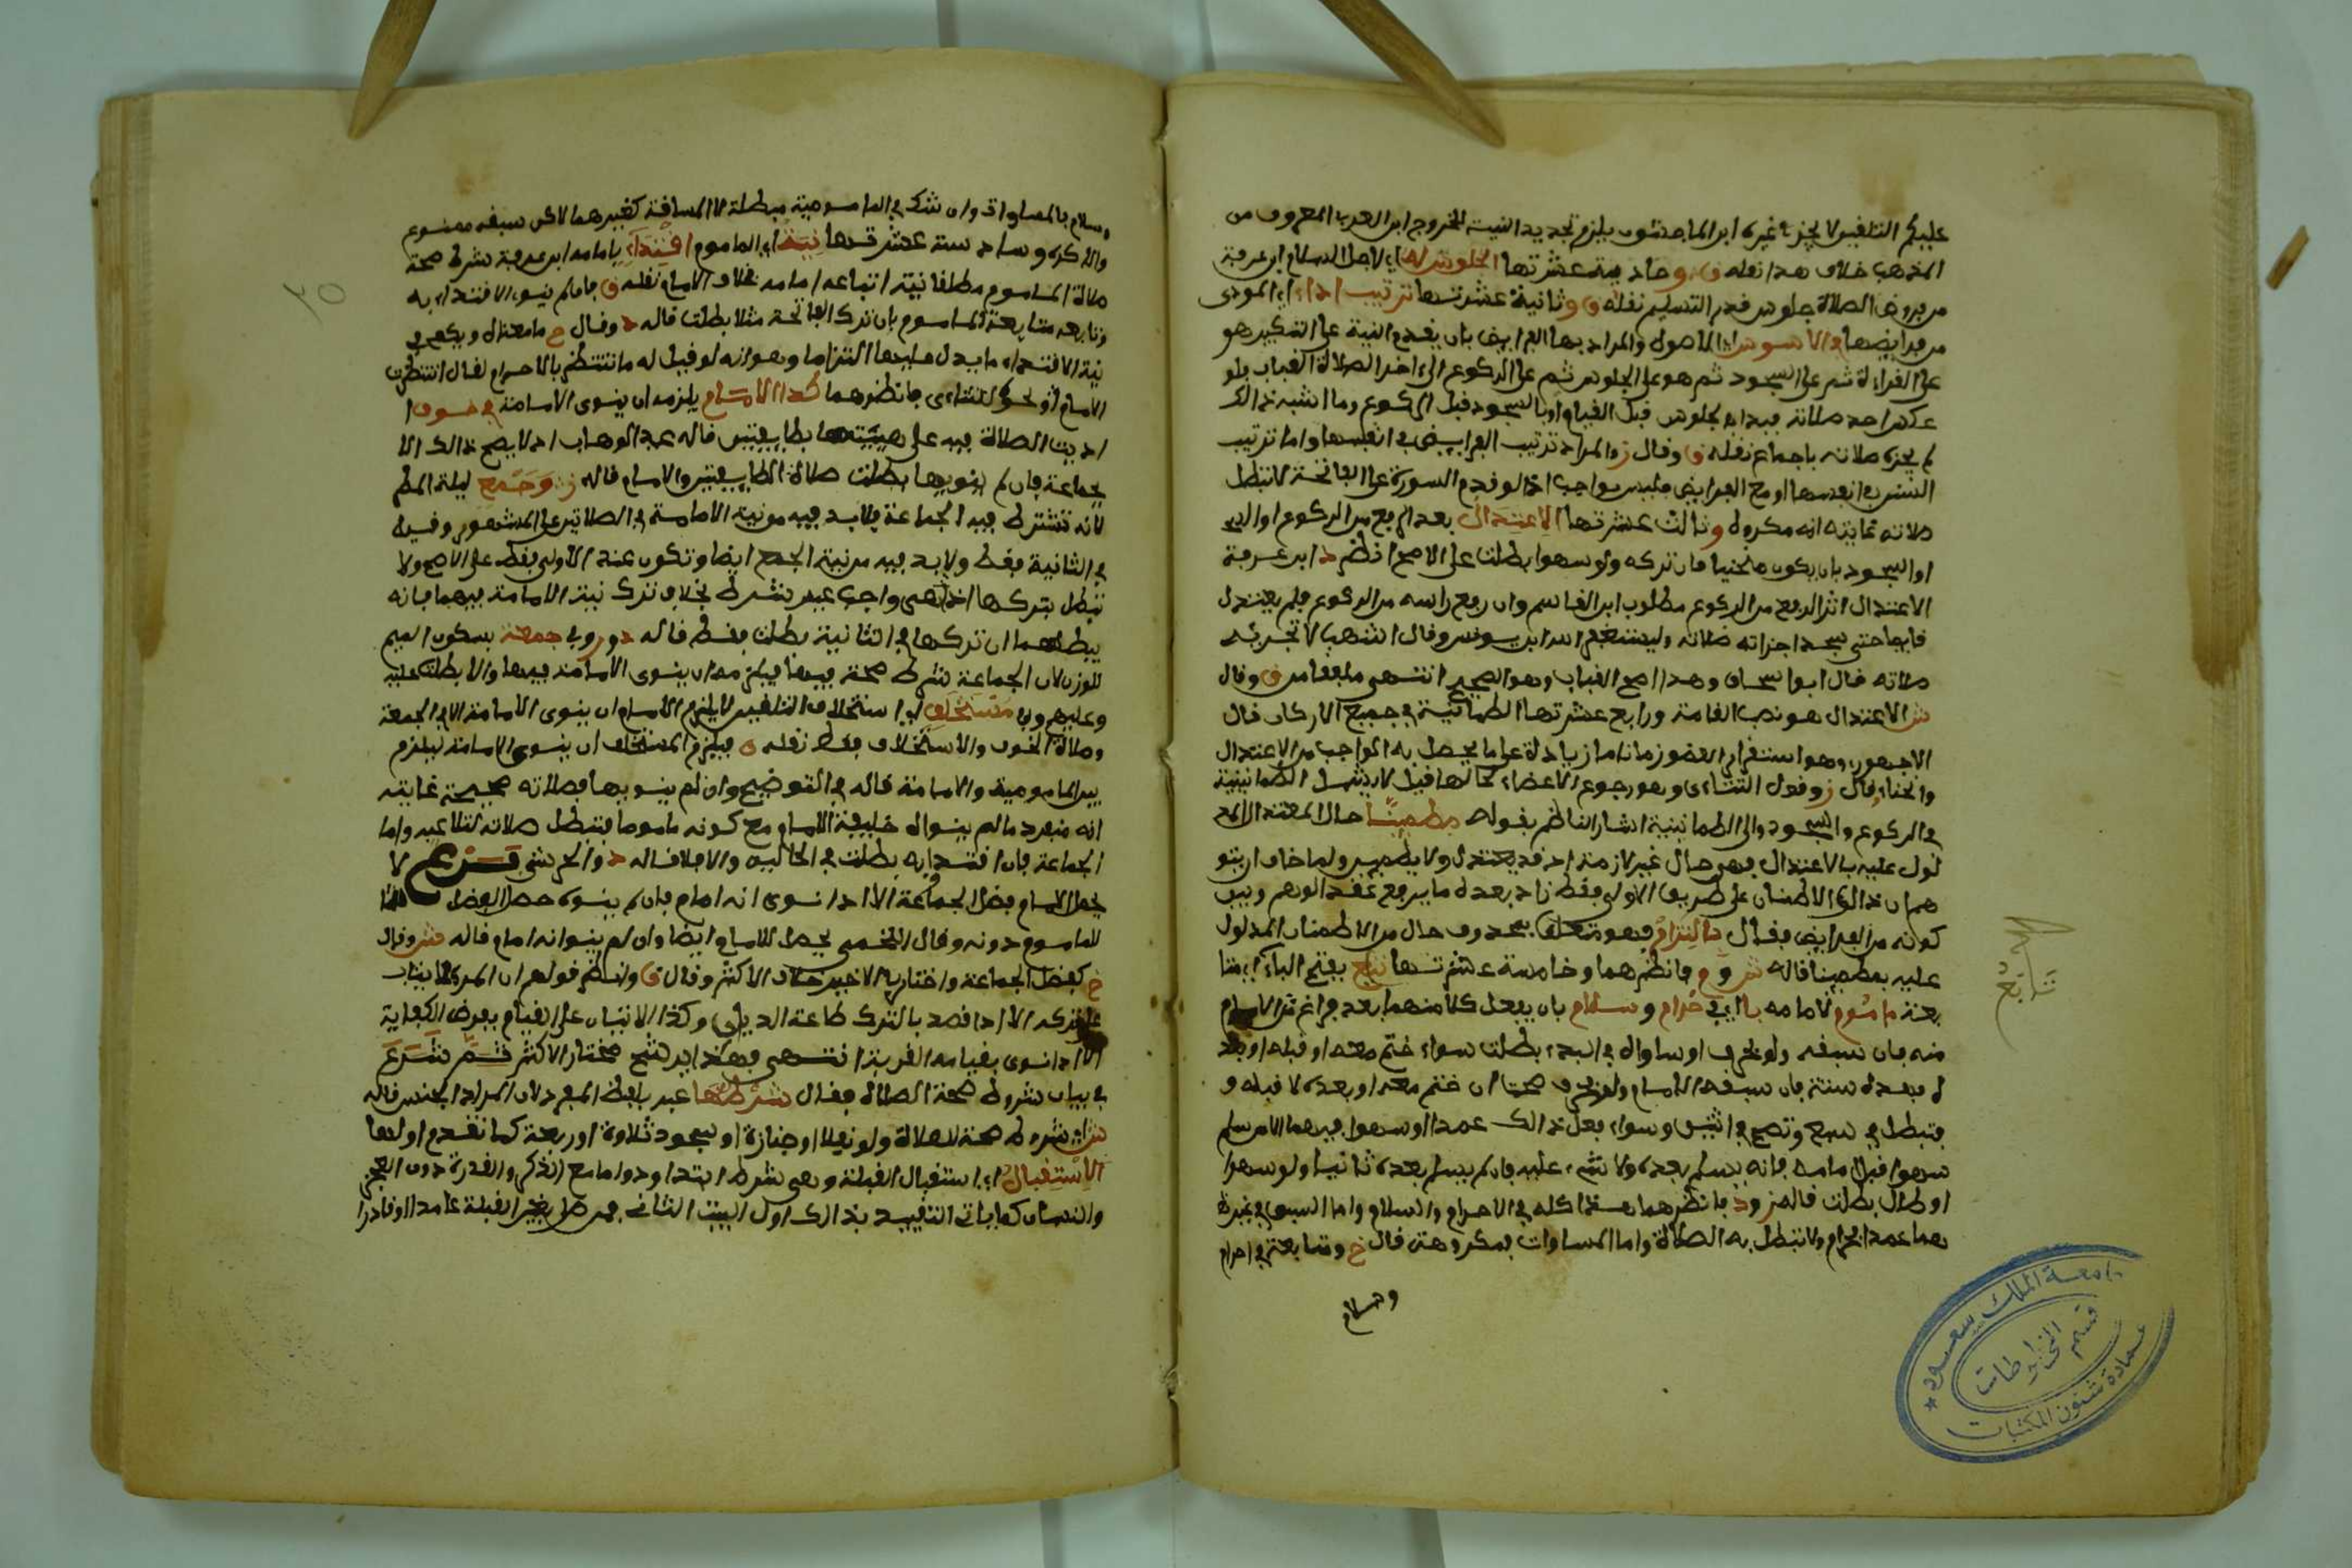 عليكم التلفين لا يجزئ غيره ابن الماجشون يلزم تجديد النية للخروج ابن العربي المعروف من
المذهب خلاف هذا نقله ق وحادية عشرتها الجلوس له اي لاجل السلام ابن عرفة
من فروض الصلاة جلوس قدر التسليم نقله ق وثانية عشرتها ترتيب اداء اي المودى
من فرايضها والاسوس اي الاصول والمراد بها الفرايض بان يقدم النية على التكبير هو
على القراءة ثم على السجود ثم هو على الجلوس ثم على الركوع الى اخر الصلاة القباب فلو
عكس احد صلاته فبدا بالجلوس قبل القيام او بالسجود قبل الركوع وما اشبه ذالك
لم يجزه صلاته باجماع نقله ق وقال ز والمراد ترتيب الفرايض في انفسها واما ترتيب
السنن في انفسها او مع الفرايض فليس بواجب اذ لو قدم السورة على الفاتحة لا تبطل
صلاته غايته انه مكروه وثالث عشرتها الاعتدال بعد الرفع من الركوع او السجود
او السجود بان يكون منحنيا فان تركه ولو سهوا بطلت على الاصح انظر د ابن عرفة
الاعتدال اثر الرفع من الركوع مطلوب ابن القاسم وان رفع راسه من الركوع فلم يعتدل
قايما حتى سجد اجزاته صلاته وليستغفر الله ابن يونس وقال اشهب لا تجزئه
صلاته قال ابو اسحاق وهذا اصح القباب وهو الصحيح انتهى ملفقا من ق وقال
ش الاعتدال هو نصب القامة ورابع عشرتها الطمانينة في جميع الاركان قال
الاجهوري وهو استقرار العضو زمانا ما زيادة على ما يحصل به الواجب من الاعتدال
وانحناء قال ز وقول التتاءى وهو رجوع الاعضاء لحالها قبل لا يشمل الطمانينة
في الركوع والسجود والى الطمانينة اشار الناظم بقوله مطمئنا حال المعتدل المد
لول عليه بالاعتدال فهي حال غير لازمة اذ قد يعتدل ولا يطمين ولما خاف ان يتو
هم ان ذالك الاطمئنان على طريق الاولى فقط زاد بعده ما يرفع عقد الوهم ويبين
كونه من الفرايض فقال بالتزام فهو متعلق بمحذوف حال من الاطمئنان المدلول
عليه بمطمينا قاله ش و م فانظرهما وخامسة عشرتها تبع بفتح الباء اي متا
بعة ماموم لامامه با اي في حرام وسلام بان يفعل كلا منهما بعد فراغ من الامام
منه فان سبقه ولو بحرف او ساواه في البدء بطلت سواء ختم معه او قبله او بعد
ه فبعده سنة فان سبقه الامام ولو بحرف صحت ان ختم معه او بعده لا قبله و
فتبطل في سبع وتصح في اثنين وسواء فعل ذالك عمدا او سهوا فيهما الا من سلم
سهوا قبل امامه فانه يسلم بعده ولا شيء عليه فان لم يسلم بعده ثانيا ولو سهوا
او طال بطلت قاله ز و د فانظرهما هذا كله في الاحرام والسلام واما السبق في غيره
هما عمدا فحرام ولا تبطل به الصلاة واما المساوات فمكروهة قال خ ومتابعة في احرام
وسلام
تتابع
جامعة الملك سعود
قسم المخطوطات
عمادة شئون المكتبات
٣٥
وسلام بالمساواة وان شك في المامومية مبطلة لا المسافة كغيرهما لاكن سبقه ممنوع
والا كره وسادسة عشرتها نية اي الماموم اقتداء بامامه ابن عرفة شرط صحة
صلاة الماموم مطلقا نية اتباعه امامه بخلاف الامام نقله ق فان لم ينو الاقتداء به
وتابعه متابعة الماموم بان ترك الفاتحة مثلا بطلت قاله د وقال م ما معناه ويكفي في
نية الاقتداء ما يدل عليها التزاما وهو انه لو قيل له ما تنتظر بالاحرام لقال انتظرت
الامام او نحوه للتتاءى فانظرهما كذا الامام يلزمه ان ينوى الامامة في خوف ا
اديت الصلاة فيه على هيئتها بطايفتين قاله عبد الوهاب اذ لا يصح ذالك الا
بجماعة فان لم ينويها بطلت صلاة الطايفتين والامام قاله ز وجمع ليلة المطر
لانه تشترط فيه الجماعة فلا بد فيه من نية الامامة في الصلاتين على المشهور وقيل
في الثانية فقط ولا بد فيه من نية الجمع ايضا وتكون عند الاولى فقط على الاصح ولا
تبطل بتركها اذ هي واجب غير شرط بخلاف ترك نية الامامة فيهما فانه
يبطلهما ان تركها في الثانية بطلت فقط قاله د و ز وفي جمعة بسكون الميم
للوزن لان الجماعة شرط صحة فيها فيلزمه ان ينوى الامامة فيها والا بطلت عليه
وعليهم وفي مستخلف اي استخلاف التلقين لا يلزم الامام ان ينوى الامامة الا في الجمعة
وصلاة الخوف والاستخلاف فقط نقله ق فيلزم المستخلف ان ينوى الامامة ليلزم
بين المامومية والامامة قاله في التوضيح وان لم ينويها فصلاته صحيحة غايته
انه منفرد ما لم ينو انه خليفة الامام مع كونه ماموما فتبطل صلاته لتلاعبه واما
الجماعة فان اقتدوا به بطلت في الحاليه والا فلا قاله د والخرشي فرع لا
يحصل للامام فضل الجماعة الا اذا نوى انه امام فان لم ينوه حصل الفضل
للماموم دونه وقال اللخمي يحصل للامام ايضا وان لم ينو انه امام قاله ش وقال
خ كفضل الجماعة واختار في الاخير خلاف الاكثر وقال ق وانظر قولهم ان المرء لا يثاب
على تركه الا اذا قصد بالترك طاعة الديان وكذا الاثياب على القيام بفرض الكفاية
الا اذا نوى بقيامه القربة انتهى فهذا يرشح مختار الاكثر ثم شرع
في بيان شروط صحة الصلاة فقال شرطها عبر بلفظ المفرد لان المراد الجنس قاله
ش اي شروط صحة للصلاة ولو نفلا او جنازة او سجود تلاوة اربعة كما تقدم اولها
الاستقبال اي استقبال القبلة وهي شرط ابتداء ودواما مع الذكر والقدرة دون العجز
والنسيان كما ياتي التقييد بذالك اول البيت الثاني فمن صلى بغير القبلة عامدا او قادرا